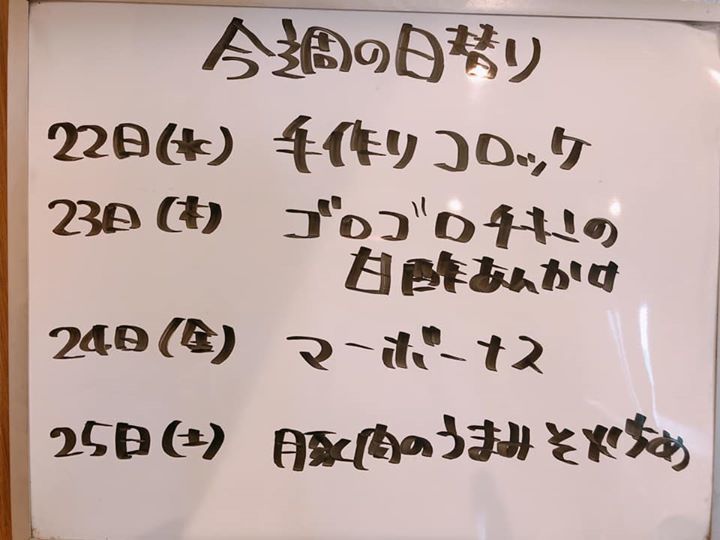 今週の日替り
22日(水) 手作りコロッケ
23日(木) ゴロゴロチキンの
甘酢あんかけ
24日(金) マーボーナス
25日(土) 豚肉のうまみそ炒め